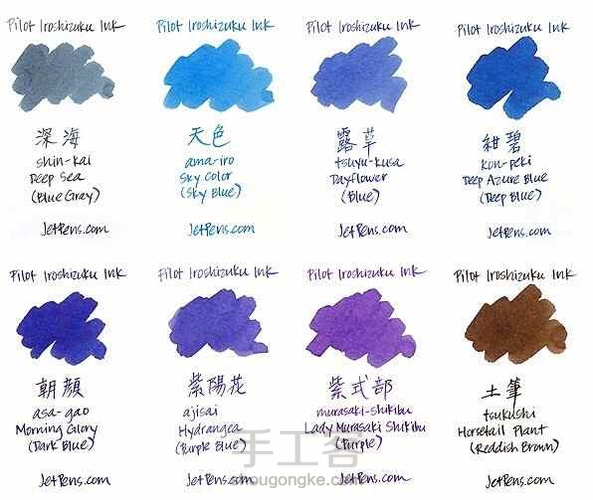 Pilot Iroshizuku Ink
深海
shin-kai
Deep Sea
(Blue Gray)
JetPens.com
Pilot Iroshizuku Ink
天色
ama-iro
Sky Color
(Sky Blue)
JetPens.com
Pilot Iroshizuku Ink
露草
tsuyu-kusa
Dayflower
(Blue)
JetPens.com
Pilot Iroshizuku Ink
紺碧
kon-peki
Deep Azure Blue
(Deep Blue)
JetPens.com
Pilot Iroshizuku Ink
朝顔
asa-gao
Morning Glory
(Dark Blue)
JetPens.com
Pilot Iroshizuku Ink
紫陽花
ajisai
Hydrangea
(Purple Blue)
JetPens.com
Pilot Iroshizuku Ink
紫式部
murasaki-shikibu
Lady Murasaki Shikibu
(Purple)
JetPens.com
Pilot Iroshizuku Ink
土筆
tsukushi
Horsetail Plant
(Reddish Brown)
JetPens.com
手工客
shougongke.com